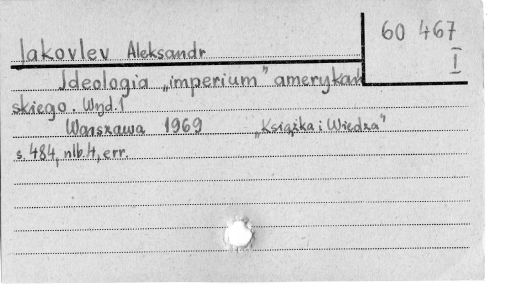 Jakovlev Aleksandr
60 467
I
Ideologia „imperium" amerykań
skiego. Wyd. 1
Warszawa 1969 „Książka i Wiedza"
s. 484, nlb. 4, err.